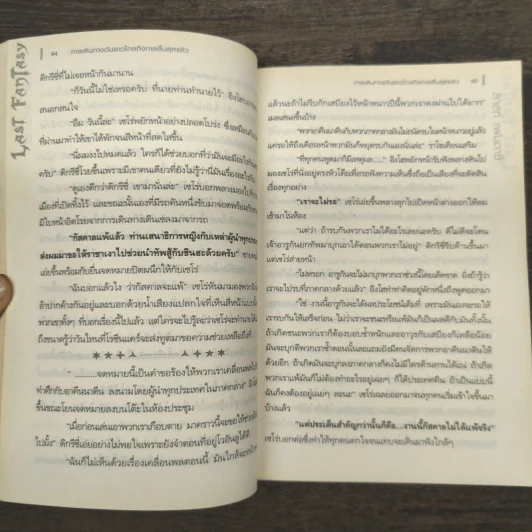 LAST FANTASY
84 การเดินทางอันยาวไกลถึงกาลสิ้นสุดแล้ว
ดิกรีซี่ที่ไม่เจอหน้ากันมานาน
"ก็วันนี้ไม่ใช่เหรอครับ ที่นายท่านทำนายไว้"
สนอกสนใจ
"อืม วันนี้ล่ะ" เซโร่พยักหน้าอย่างปลอดโปร่ง ซึ่งเหมือนกับ
ที่ผ่านมาทำให้เราได้พักจนสีหน้าที่สดใสขึ้น
"นี่ผมงงไปหมดแล้ว ใครก็ได้ช่วยบอกที่ว่ามันจะมีอะไร
ครับ" ดิกรีซี่โวยขึ้นเพราะมีเขาคนเดียวที่ยังไม่รู้ว่านี่มันเรื่องอะไร
"ดูเองดีกว่าดิกรีซี่ เขามานั่นล่ะ" เซโร่บอกพลางมองไป
เมืองที่เปิดทิ้งไว้ และขณะนั้นเองที่มีรถคันหนึ่งขับมาจอดพร้อมกับ
มีใบหน้าอิดโรยจากการเดินทางเดินแซงมาจากรถ
"กัสคาลแพ้แล้ว ท่านเสนาธิการหญิงกับเหล่าผู้นำทุกประเทศ
ส่งผมมาขอให้ราชางาไปช่วยนำทัพสู้กับชินฮะด้วยครับ"
เอ่ยขึ้นพร้อมกับยื่นจดหมายปิดผนึกให้กับเซโร่
"ฉันบอกแล้วไง ว่ากัสคาลจะแพ้" เซโร่หันมามองพวก
อ้าปากค้างกันอยู่และบอกด้วยน้ำเสียงแปลกใจที่เห็นสีหน้าแบบนั้น
พวกเขาทั้งๆ ที่บอกเรื่องนี้ไปแล้ว แต่ใครจะไปรู้ล่ะว่าเซโร่จะทำนาย
ถึงขนาดรู้ว่าวันไหนที่โรชินแคร์จะส่งทูตมาขอความช่วยเหลือถึงที่
"...............จดหมายนี้เป็นคำขอร้องให้พวกเราเคลื่อนพล
ทำศึกกับอาดีนดาดีน ลงนามโดยผู้นำทุกประเทศในภาคกลาง"
ขึ้นขณะโยนจดหมายลงบนโต๊ะในห้องประชุม
"เมื่อก่อนเล่นเอาพวกเราเกือบตาย มาคราวนี้จะขอให้ช่วย
ไปมั้ง" ดิกรีซี่เอ่ยอย่างไม่พอใจเพราะยังจำตอนที่อยู่ไวอันลูได้ดี
"ฉันก็ไม่เห็นด้วยเรื่องเคลื่อนพลตอนนี้ มันใกล้จะ
การเดินทางอันยาวไกลถึงกาลสิ้นสุดแล้ว
แล้วนะถ้าไม่รีบกักเสบียงไว้หน้าหนาวปีนี้พวกเราคงผ่านไปได้ยาก"
เมลเสนขึ้นบ้าง
"พวกอาดีนดาดีนกับพวกภาคกลางมันไม่ถนัดรบในหน้าหนาวอยู่แล้ว
แค่รอให้ถึงเดือนหน้าพวกมันก็หยุดรบกันเองล่ะนะ"
"ที่ทุกคนพูดมาก็มีเหตุมูล....."
มองเซโร่ที่นั่งอยู่ตรงหัวโต๊ะเพื่อรอฟังความเห็นซึ่งถือเป็นเสียงที่จะตัดสิน
เรื่องทุกอย่าง
"เราจะไม่รอ" เซโร่เอ่ยขึ้นพลางลุกไปเปิดหน้าต่างออกให้ลม
เข้ามาในห้อง
"แต่ว่า ถ้ารบกันพวกเราไม่ได้อะไรเลยนะครับ ดีไม่ดีจะโดน
เจ้าอารูกันยกทัพมาบุกเอาได้ตอนพวกเราไม่อยู่" ดิกรีซี่รีบค้านขึ้นมา
แต่เซโร่ส่ายหน้า
"ไม่หรอก อารูกันจะไม่มาบุกพวกเราช่วงนี้โดยเด็ดขาด ยิ่งถ้ารู้ว่า
เราจะไปรบที่ภาคกลางด้วยแล้ว"
"ใช่ งานนี้อารูกันจะได้ผลประโยชน์เต็มที่ เพราะมันเองจะรอให้
เรารบกันให้เสร็จก่อน ไม่ว่าเราจะชนะหรือแพ้มันก็เป็นผลดีกับมันทั้งนั้น
ถ้าเกิดชนะพวกเราก็ต้องบอบช้ำหนักและอาวุธกับเสบียงก็เหลือน้อย
มันจะบุกพวกเราซ้ำตอนนั้นและแถมยังมีคนจัดการพวกอาดีนดาดีนให้
ด้วยอีก ถ้าเกิดมันจะบุกลงภาคกลางก็คงไม่มีใครต้านทานได้แน่ ถ้าเกิด
พวกเราแพ้มันก็ไม่ต้องทำอะไรอยู่เฉยๆ ก็ได้ประเทศเดิน ถ้าเป็นแบบนี้
ฉันก็คงต้องอยู่เฉยๆ ละนะ" เซโร่เฉลยออกมาจนทุกคนเริ่มเข้าใจขึ้นมา
บ้างแล้ว
"แต่ประเด็นสำคัญกว่านั้นก็คือ....งานนี้กัสคาลไม่ได้แพ้จริง"
เซโร่บอกต่อซึ่งทำให้ทุกคนตกใจจนแทบจะเดินมาฟังใกล้ๆ